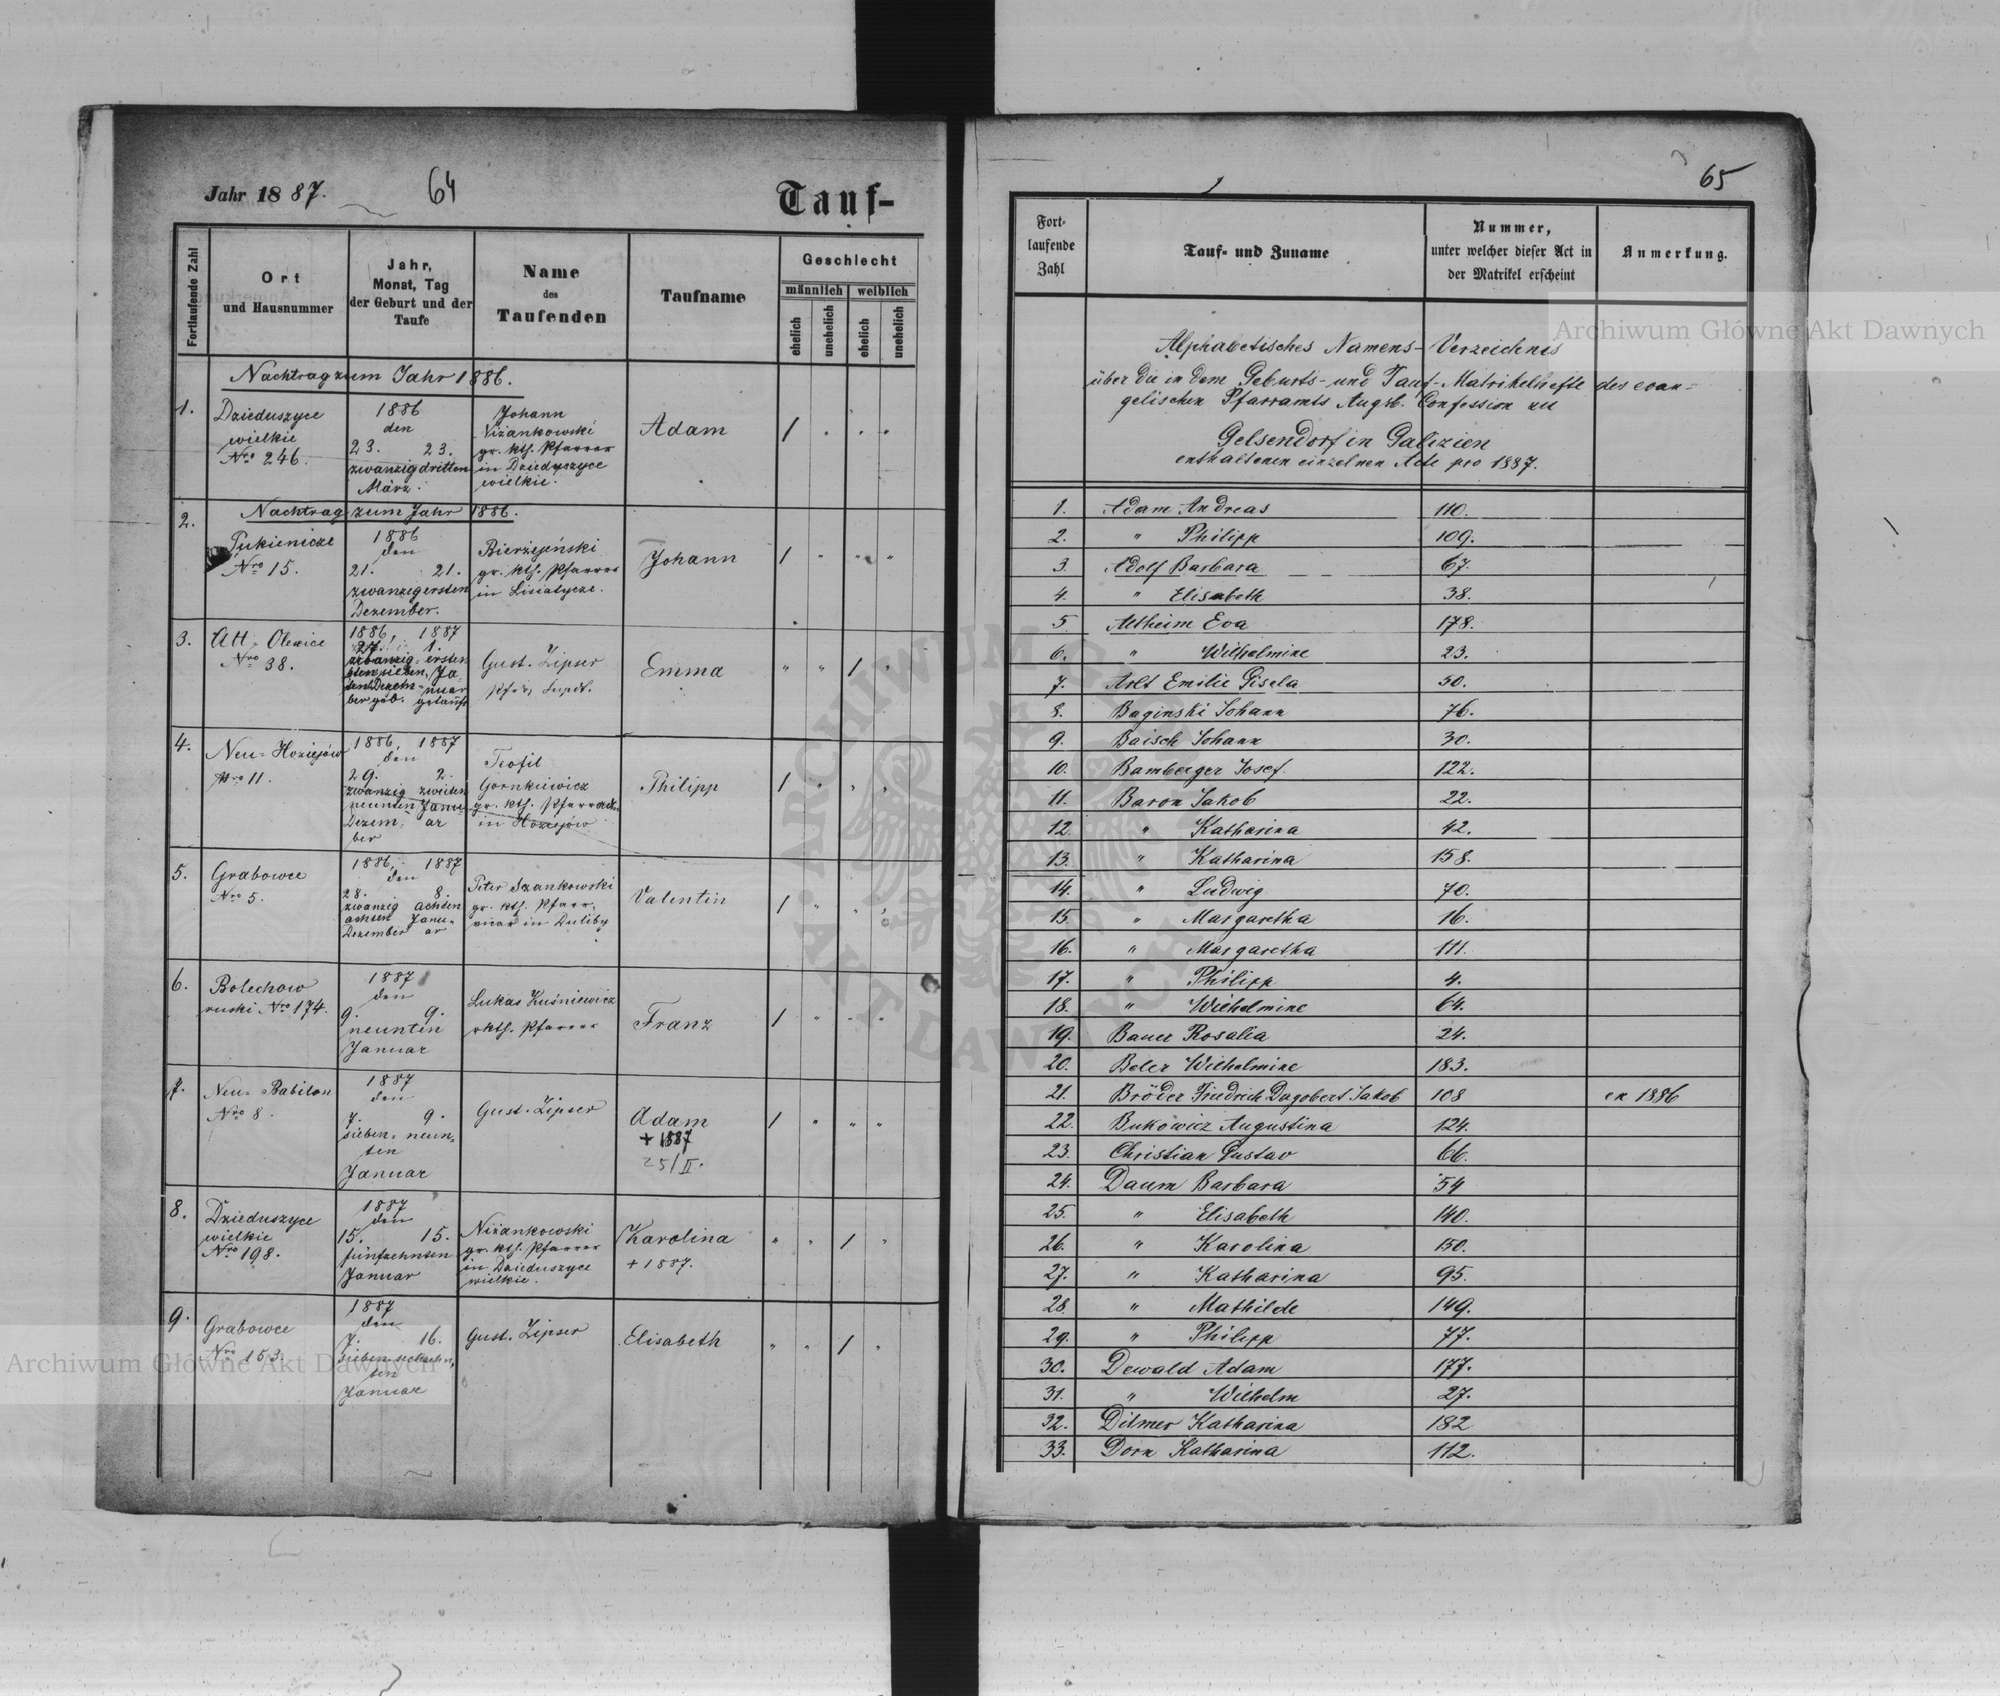 Jahr 1887.
64
Tauf-
Fortlaufende Zahl
Ort
und Hausnummer
Jahr,
Monat, Tag
der Geburt und der
Taufe
Name
des
Taufenden
Taufname
Geschlecht
männlich
weiblich
ehelich
unehelich
ehelich
unehelich
Nachtrag zum Jahr 1886.
1.
Dzieduszyce
wielkie
Nro 246.
1886
den
23. 23.
zwanzigdritten
März.
Johann
Niżankowski
gr. kth. Pfarrer
in Dziedyszyce
wielkie.
Adam
1
Nachtrag zum Jahr 1886.
2.
Pukienicze
Nro 15.
1886
den
21. 21.
zwanzigersten
Dezember.
Bierzejeński
gr. kth. Pfarrer
in Lisiatycze.
Johann
1
3.
Att. Olexice
Nro 38.
1886, 1887
27. 1.
ersten
Ja-
nuar
ber geb. getauft
Gust. Zipser
Emma
1
4.
Neu-Hoziejów
Nro 11.
1886, 1887
den
29. 2.
zwanzig zweiten
neunten Janu-
Dezem- ar
ber
Teofil
Gornkiewicz
gr. kth.
in Hoziejów
Philipp
1
5.
Grabowce
Nro 5.
1886, 1887
den
28. 8.
zwanzig achten
achten Janu-
Dezember ar
Peter Szankowski
gr. kth. Pfarr-
vicar in Duliby
Valentin
1
6.
Bolechow
ruski Nro 174.
1887
den
9. 9.
neunten
Januar
Lukas Kuśniewicz
rkth. Pfarrer
Franz
1
7.
Neu-Babilon
Nro 8.
1887
den
7. 9.
sieben- neun-
ten
Januar
Gust. Zipser
Adam
+ 1887
25/II.
1
8.
Dzieduszyce
wielkie
Nro 198.
1887
den
15. 15.
fünfzehnten
Januar
Niżankowski
gr. kth. Pfarrer
in Dzieduszyce
wielkie.
Karolina
+ 1887.
1
9.
Grabowce
Nro 153.
1887
den
7. 16.
Sieben- sechzehn-
ten
Januar
Gust. Zipser
Elisabeth
1
65
Fort-
laufende
Zahl
Tauf- und Zuname
Nummer,
unter welcher dieser Act in
der Matrikel erscheint
Anmerkung.
Alphabetisches Namens-Verzeichnis
über die in dem Geburts- und Tauf-Matrikelhefte des evan-
gelischen Pfarramts Augsb. Confession zu
Gelsendorf in Galizien
enthaltenen einzelnen Acte pro 1887.
1. Adam Andreas 110.
2. " Philipp 109.
3. Adolf Barbara 67.
4. " Elisabeth 38.
5. Altheim Eva 178.
6. " Wilhelmine 23.
7. Arlt Emilie Gisela 50.
8. Baginski Johann 76.
9. Baisch Johann 30.
10. Bamberger Josef. 122.
11. Baron Jakob 22.
12. " Katharina 42.
13. " Katharina 158.
14. " Ludwig 70.
15. " Margaretha 16.
16. " Margaretha 111.
17. " Philipp 4.
18. " Wilhelmine 64.
19. Bauer Rosalia 24.
20. Beler Wilhelmine 183.
21. Bröder Friedrich Dagobert Jakob 108 ex 1886
22. Bukowicz Augustina 124.
23. Christian Gustav 66.
24. Daum Barbara 54
25. " Elisabeth 140.
26. " Karolina 150.
27. " Katharina 95.
28. " Mathilde 149.
29. " Philipp 77.
30. Dewald Adam 177.
31. " Wilhelm 27.
32. Ditmer Katharina 182
33. Dorn Katharina 112.
Archiwum Główne Akt Dawnych
Archiwum Główne Akt Dawnych
ARCHIWUM GŁÓWNE AKT DAWNYCH